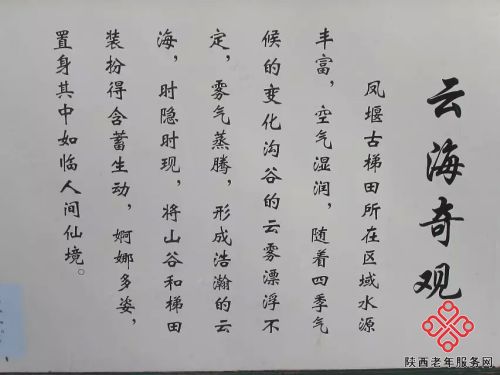 云海奇观
凤堰古梯田所在区域水源
丰富，空气湿润，随着四季气
候的变化沟谷的云雾漂浮不
定，雾气蒸腾，形成浩瀚的云
海，时隐时现，将山谷和梯田
装扮得含蓄生动，婀娜多姿，
置身其中如临人间仙境。
陕西老年服务网